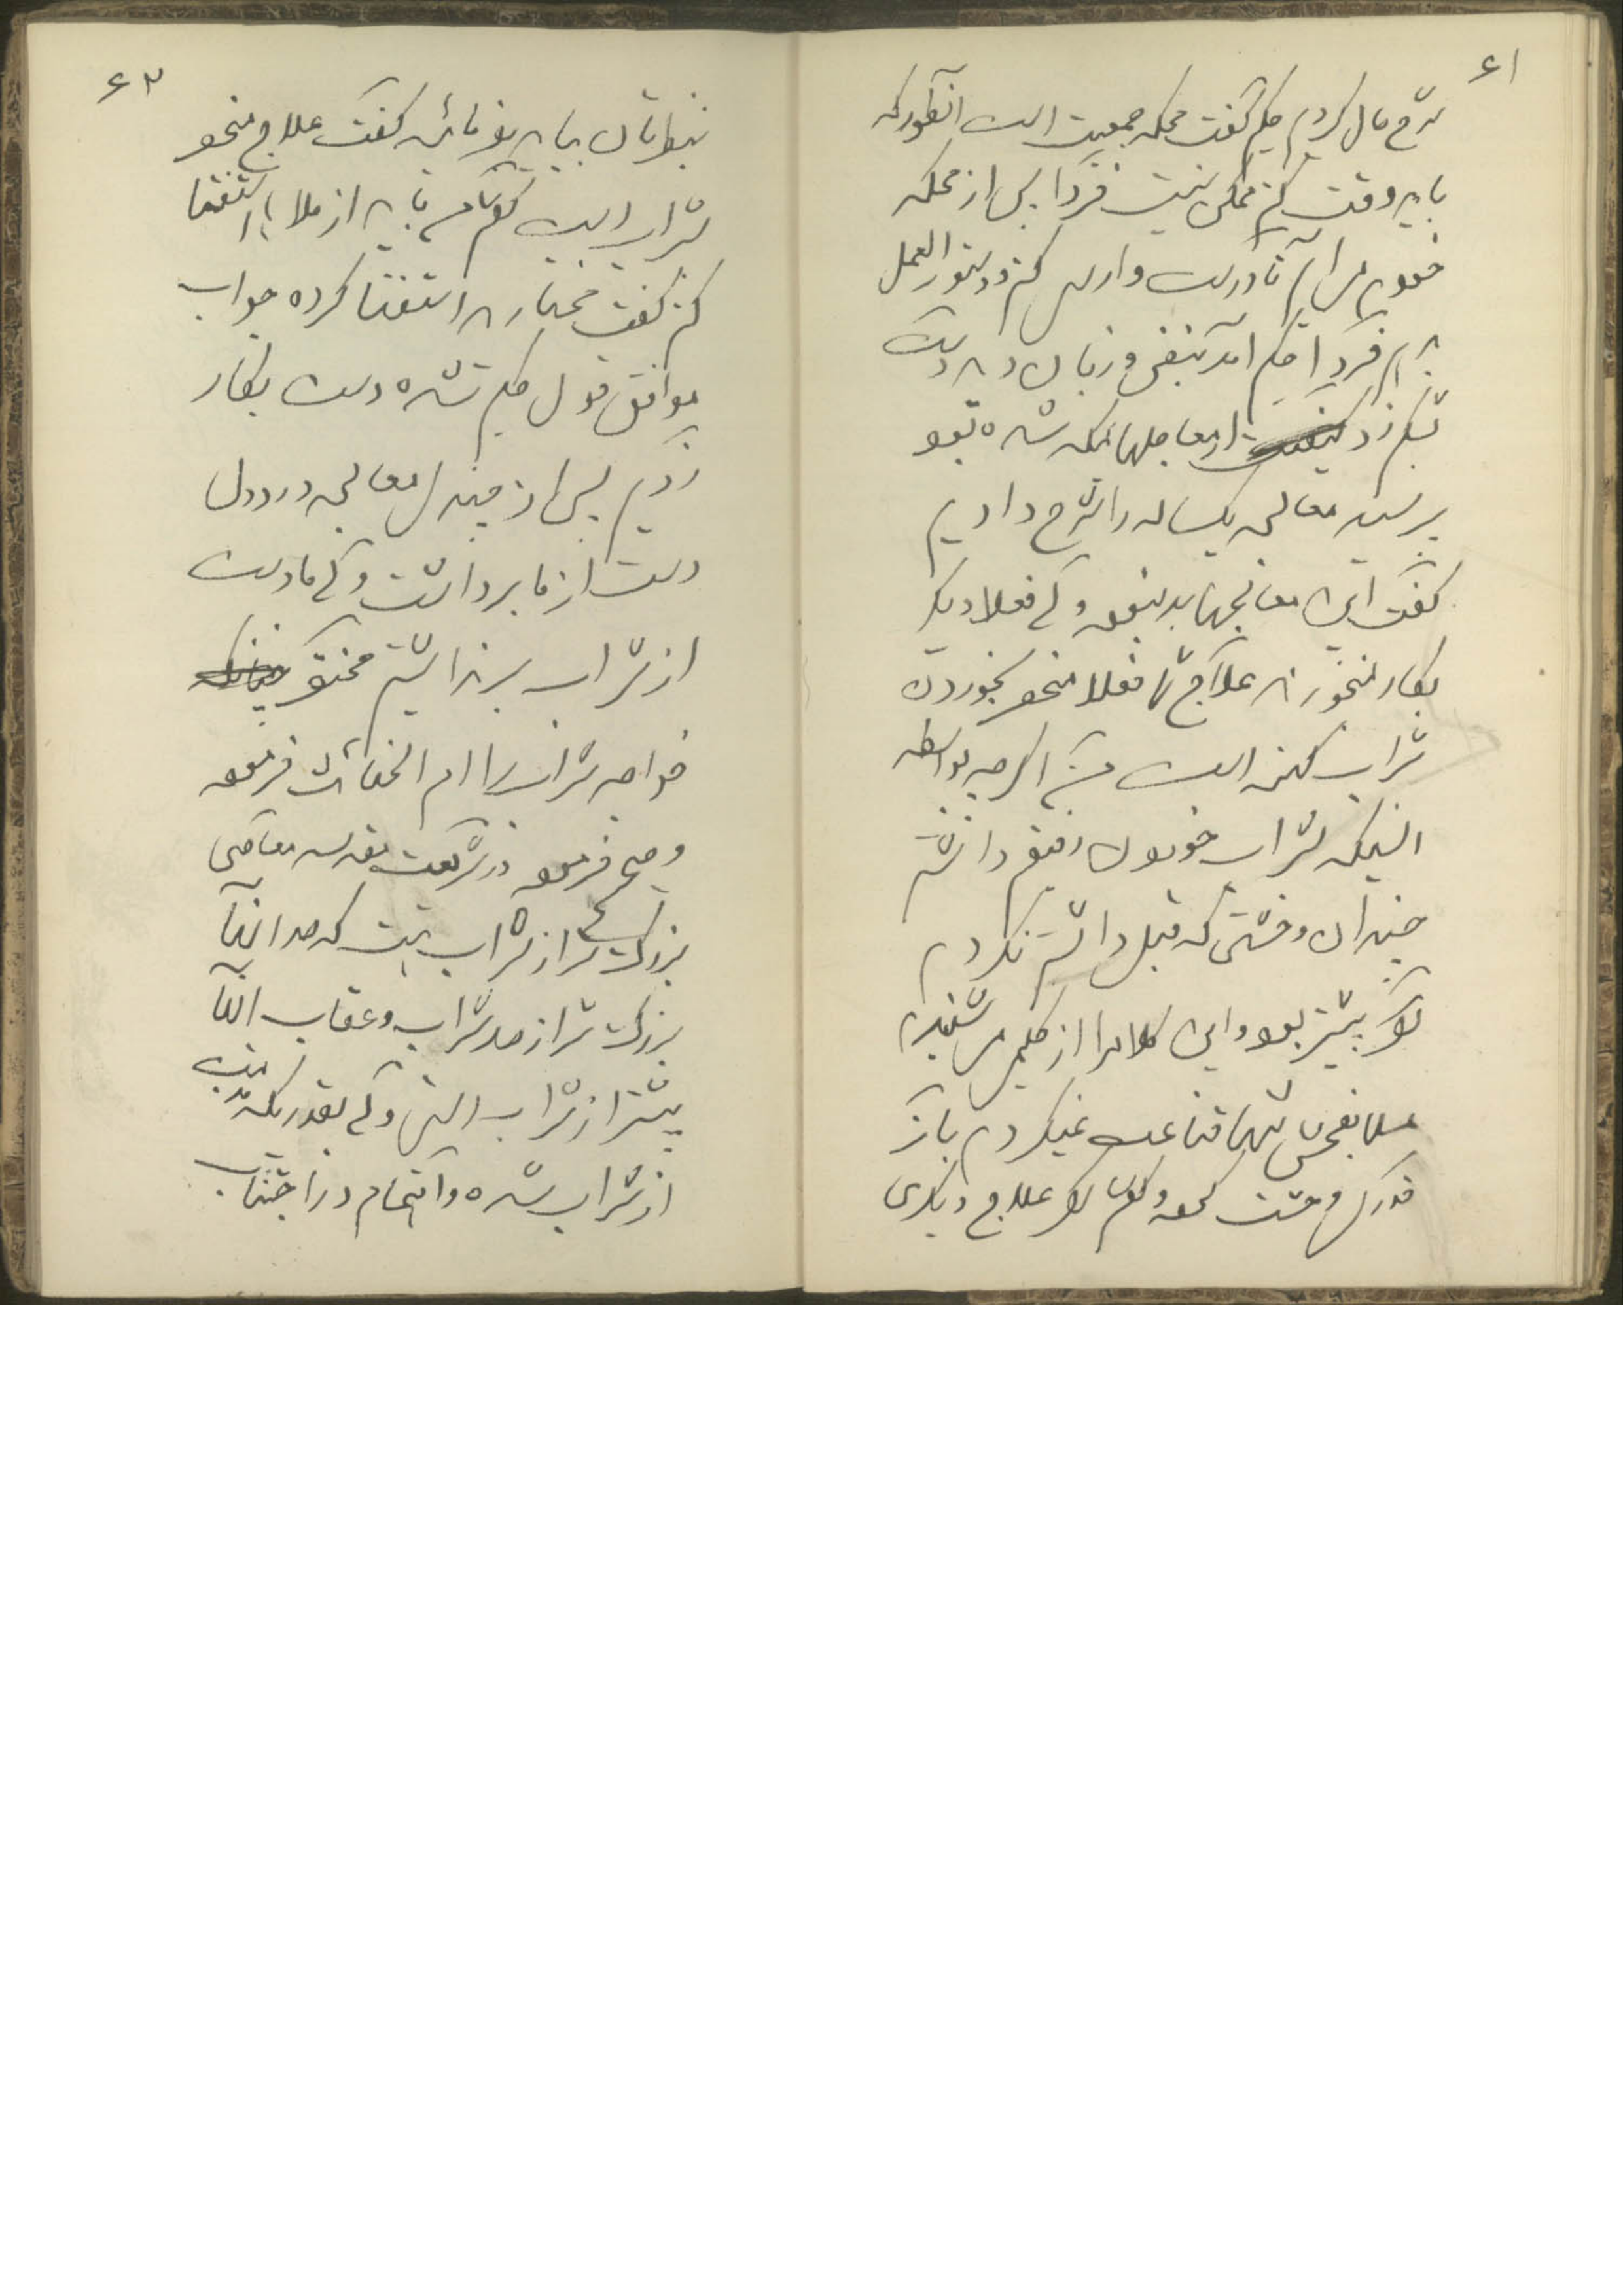 ۶۱
شرح حال کردم حکیم گفت محکمه جمعیت است آنطور که
باید وقت کنم ممکن نیست فردا پس از محکمه
خودم می آیم تا درست وارسی کنم و دستور العمل
بدهم فردا حکیم آمد نبض و زبان دید دست
بشکم زد از معالجهائیکه شده بود
پرسید معالجه یکساله را شرح دادیم
گفت این معالجها بد نبود ولی فعلا دیگر
بکار نمیخورد علاج شما فعلا منحصر بخوردن
شراب کهنه است من اگرچه بواسطه
اینکه شراب خوردن رفیقم داشتم
چندان وحشتی که قبل داشتم نکردم
اگر پیشتر بود و این کلام را از حکیم می شنیدم
مسلما بفحش تنها قناعت نمیکردم باز
قدری وحشت کرده گفتم اگر علاج دیگری
۶۲
بنظرتان بیاید بفرمائید گفت علاج منحصر
شراب است گفتم باید از ملاها استفتا
کنم گفت مختارید استفتا کرده جواب
موافق قول حکیم شده دست بکار
زدیم پس از چندی معالجه درد دل
دست از ما برداشت ولی ما دست
از شراب برنداشتیم مختصر
خواجه شراب را ام الخبائث فرموده
و صحیح فرموده در شریعت مقدسه معاصی
بزرگتر از شراب هست که حد آنها
بزرگ تر از حد شراب و عقاب آنها
بیشتر از شراب است ولی بقدریکه مذمت
از شراب شده و اهتمام در اجتناب